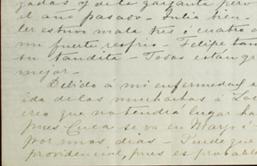 gadas y de la garganta pero
el año pasado. Julia tien
ter estuvo mala tres o cuatro d
un fuerte resfrio. Felipe tam
su bandita. Todas estan gr
mejor.
Debido a mi enfermedad, a
ida de las muchachas á
creo que no tendrá lugar ha
pues Cuca se va en Mayo i
por unos dias. Puede que
providencial, pues es probable